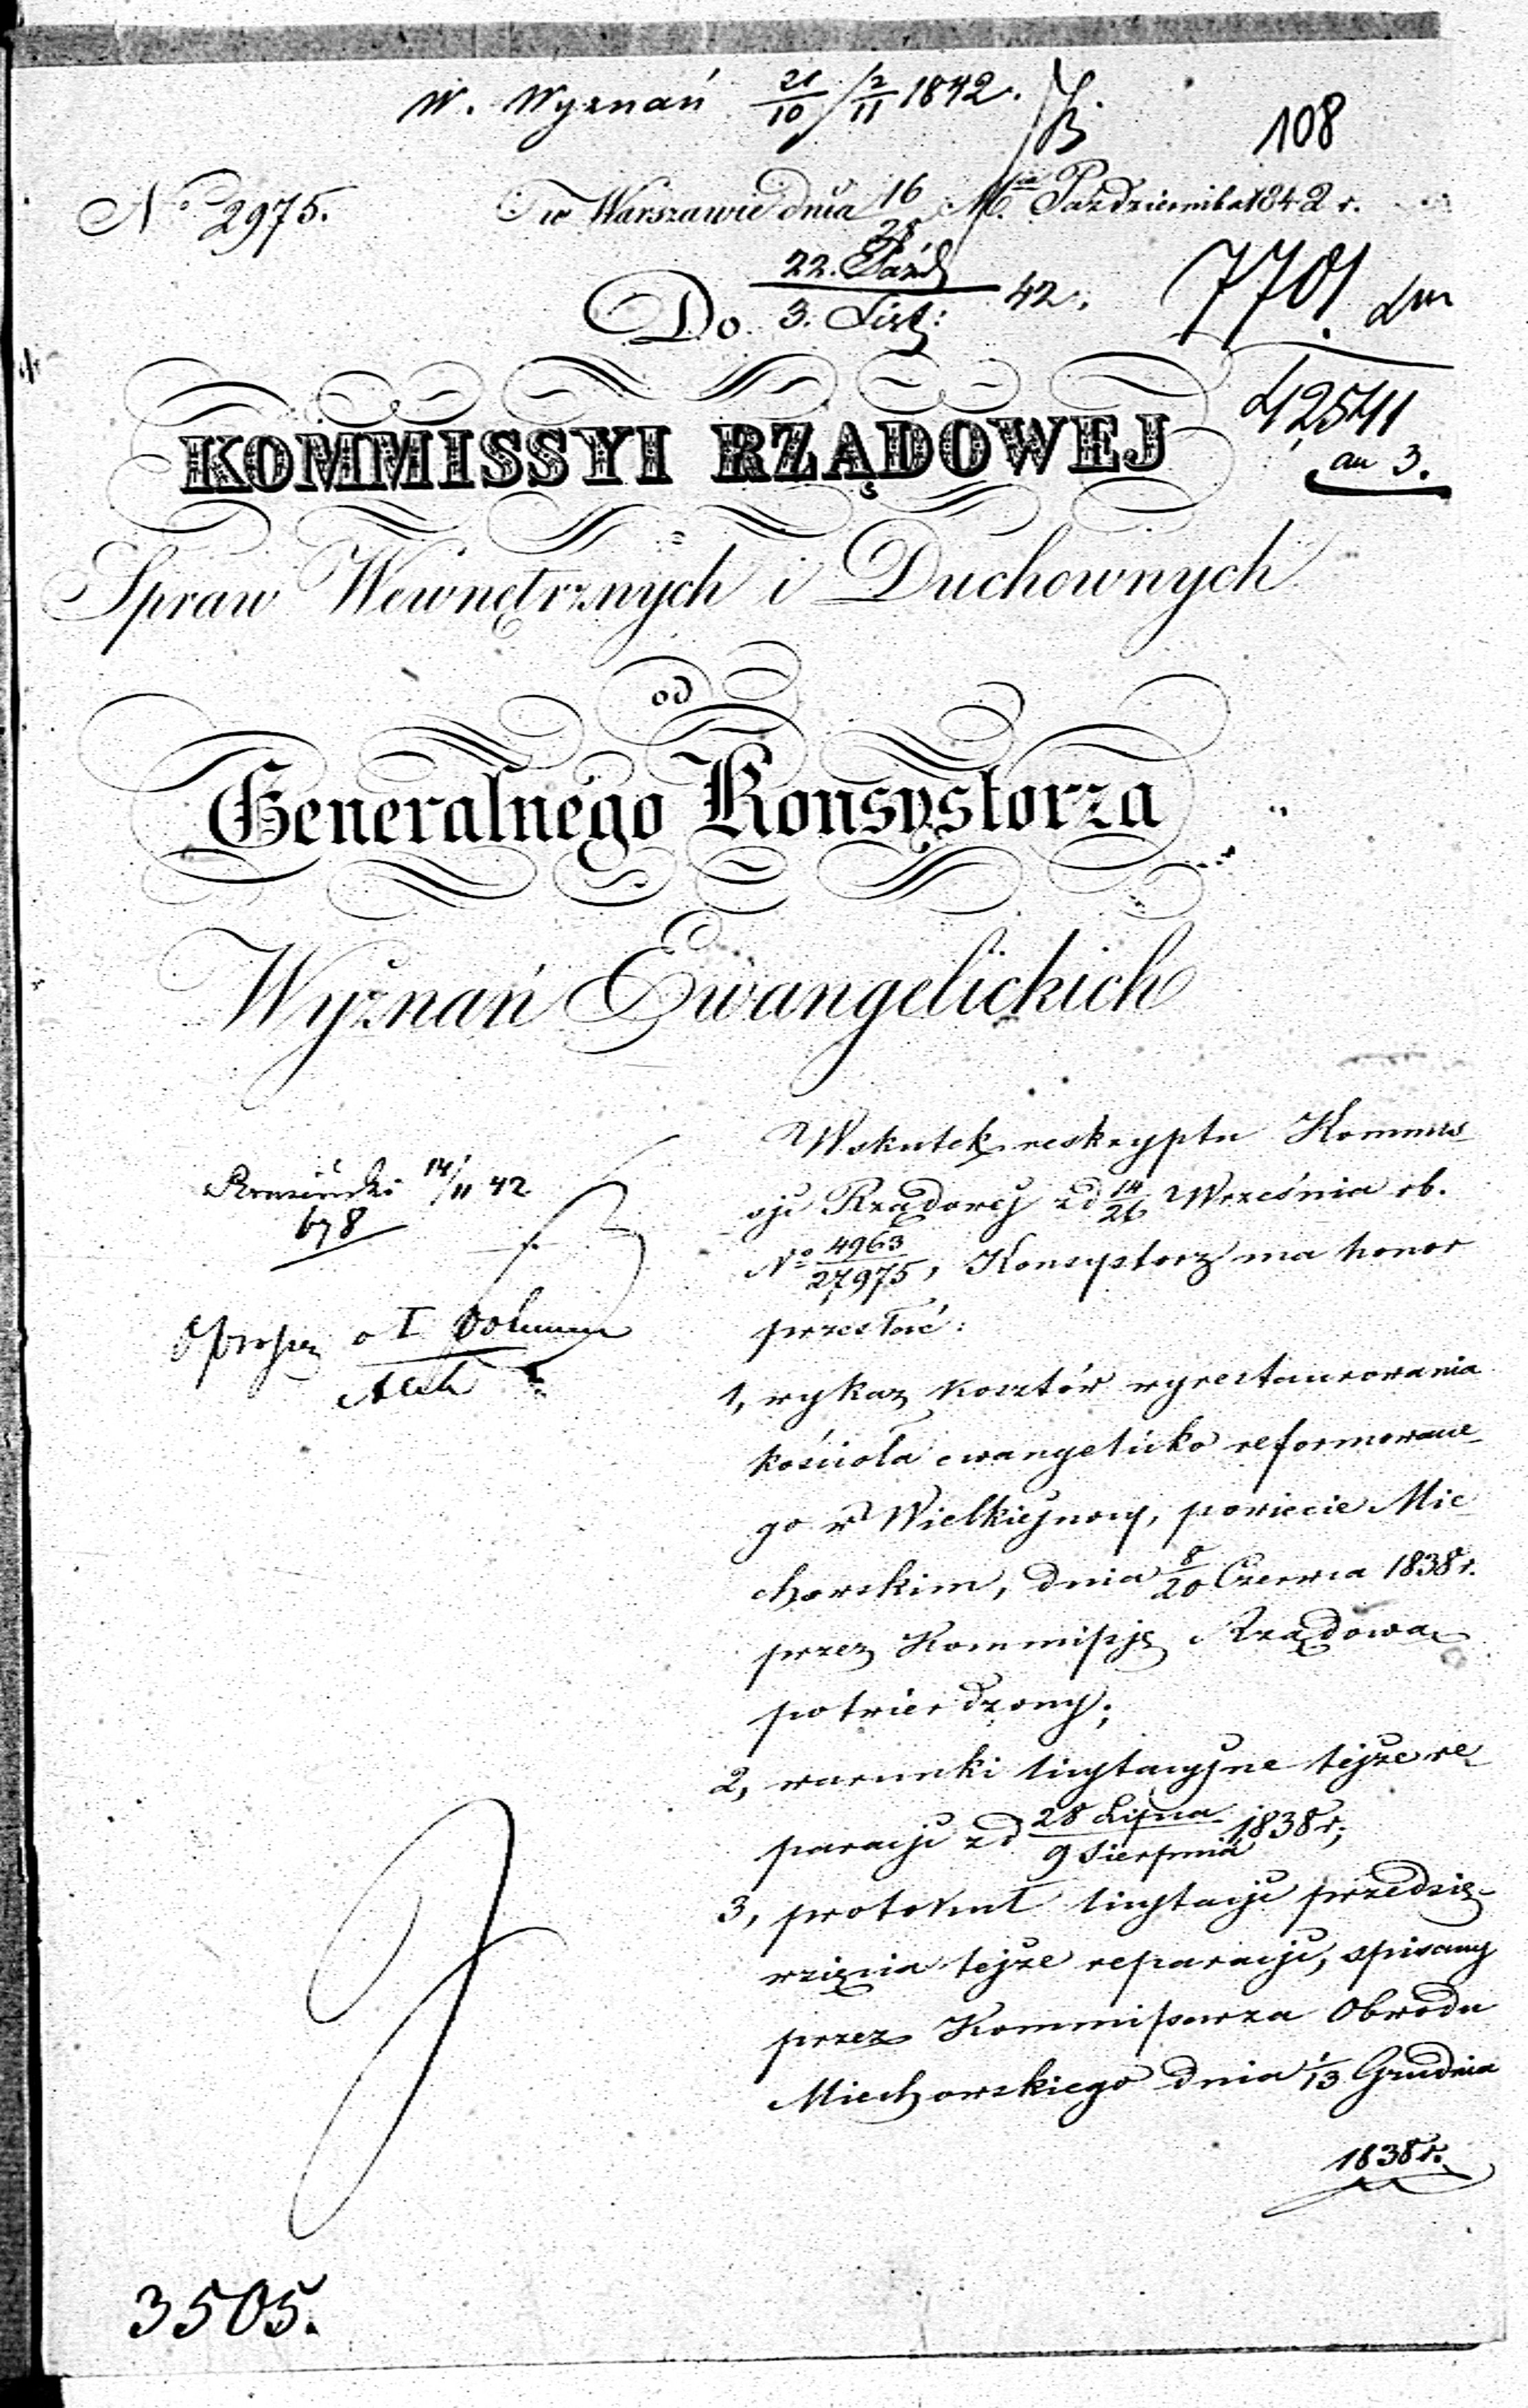 W. Wyznań 21/10 / 2/11 1842.
108
No 2975.
w Warszawie dnia 16/28 Mca Października 1842 r.
22. Paźd / 3. List: 42.
7701
Do
42541
an 3.
KOMMISSYI RZĄDOWEJ
Spraw Wewnętrznych i Duchownych
od
Generalnego Konsystorza
Wyznań Ewangelickich
14/11 42
678
o I Volumen
Wskutek reskryptu Kommis
syi Rządowej z d 14/26 Września rb.
No 4963/27975, Konsystorz ma honor
przesłać:
1, wykaz kosztów wyrestaurowania
kościoła ewangelicko reformowane
go w Wielkiejnocy, powiecie Mie
chowskim, dnia 8/20 Czerwca 1838 r.
przez Kommissję Rządową
potwierdzony;
2, warunki licytacyjne tejże re
paracji z d 28 Lipca / 9 Sierpnia 1838 r;
3, protokuł licytacji przedsię-
wzięcia tejże reparacji, spisany
przez Kommissarza Obwodu
Miechowskiego dnia 1/13 Grudnia
1838 r.
3505.